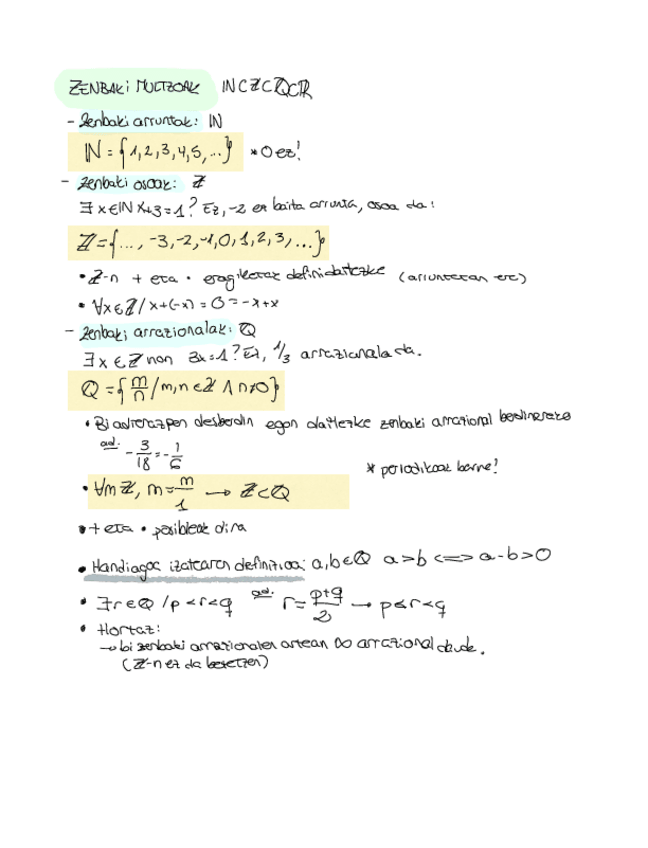 ZENBAKI MULTZOAK ℕ⊂ℤ⊂ℚ⊂ℝ
- Zenbaki arruntak: ℕ
ℕ = {1,2,3,4,5,...} * 0 ez!
- Zenbaki osoak: ℤ
∃x∈ℕ x+3=1? Ez, -2 ez baita arrunta, osoa da!
ℤ={..., -3,-2,-1,0,1,2,3,...}
• ℤ-n + eta · eragiketak defini daitezke (arruntetan ere)
• ∀x∈ℤ / x+(-x)=0=-x+x
- Zenbaki arrazionalak: ℚ
∃x∈ℤ non 3x=1? Ez, 1/3 arrazionala da.
ℚ={m/n / m,n∈ℤ ∧ n≠0}
• Bi adierazpen desberdin egon daitezke zenbaki arrazional berdinerako
ad. -3/18=-1/6
* periodikoak barne!
• ∀m ℤ, m=m/1 → ℤ⊂ℚ
• + eta · posibleak dira
• Handiagoa izatearen definizioa: a,b∈ℚ a>b <=> a-b>0
• ∃r∈ℚ /p<r<q ad. r=p+q/2 → p<r<q
• Hortaz:
→ bi zenbaki arrazionalen artean ∞ arrazional daude.
(ℤ-n ez da betetzen)